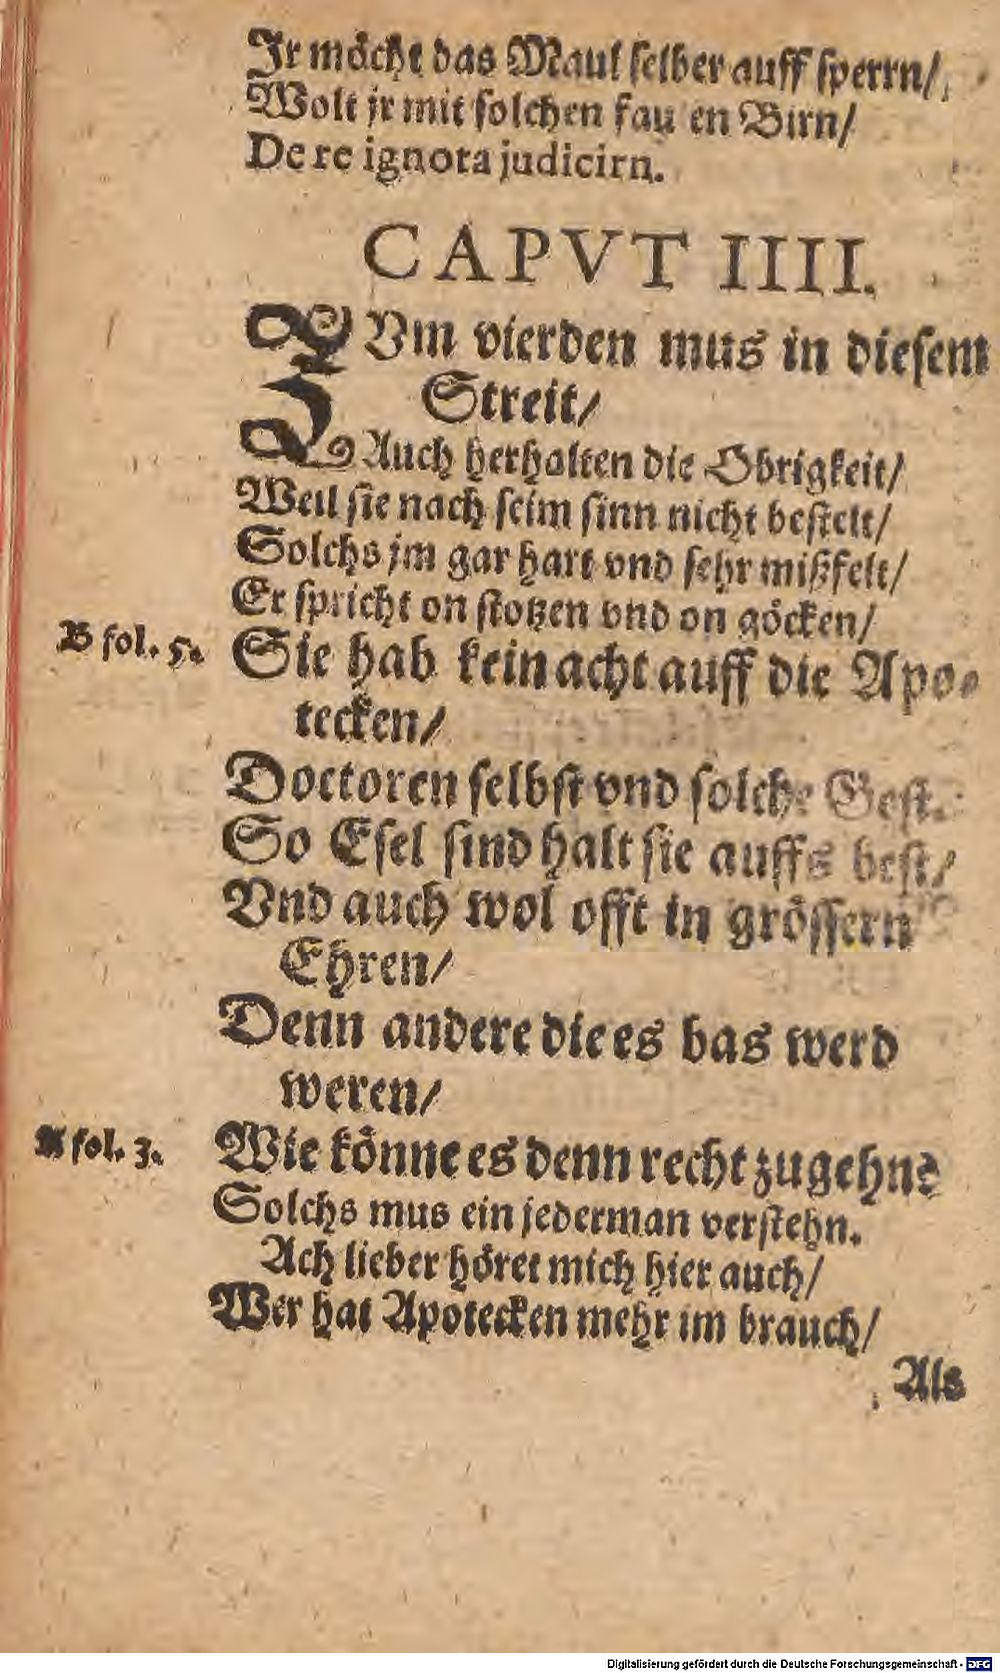 Ir möcht das Maul selber auff sperrn/
Wolt jr mit solchen fau en Birn/
De re ignota judicirn.
CAPVT IIII.
ZVm vierden mus in diesem
Streit/
Auch herhalten die Obrigkeit/
Weil sie nach seim sinn nicht bestelt/
Solchs jm gar hart vnd sehr mißfelt/
Er spricht on stotzen vnd on göcken/
B fol. 5.
Sie hab kein acht auff die Apo-
tecken/
Doctoren selbst vnd solche Gest.
So Esel sind halt sie auffs best/
Vnd auch wol offt in grössern
Ehren/
Denn andere die es bas werd
weren/
A fol. 3.
Wie könne es denn recht zugehn?
Solchs mus ein jederman verstehn.
Ach lieber höret mich hier auch/
Wer hat Apotecken mehr im brauch/
Als
Digitalisierung gefördert durch die Deutsche Forschungsgemeinschaft - DFG